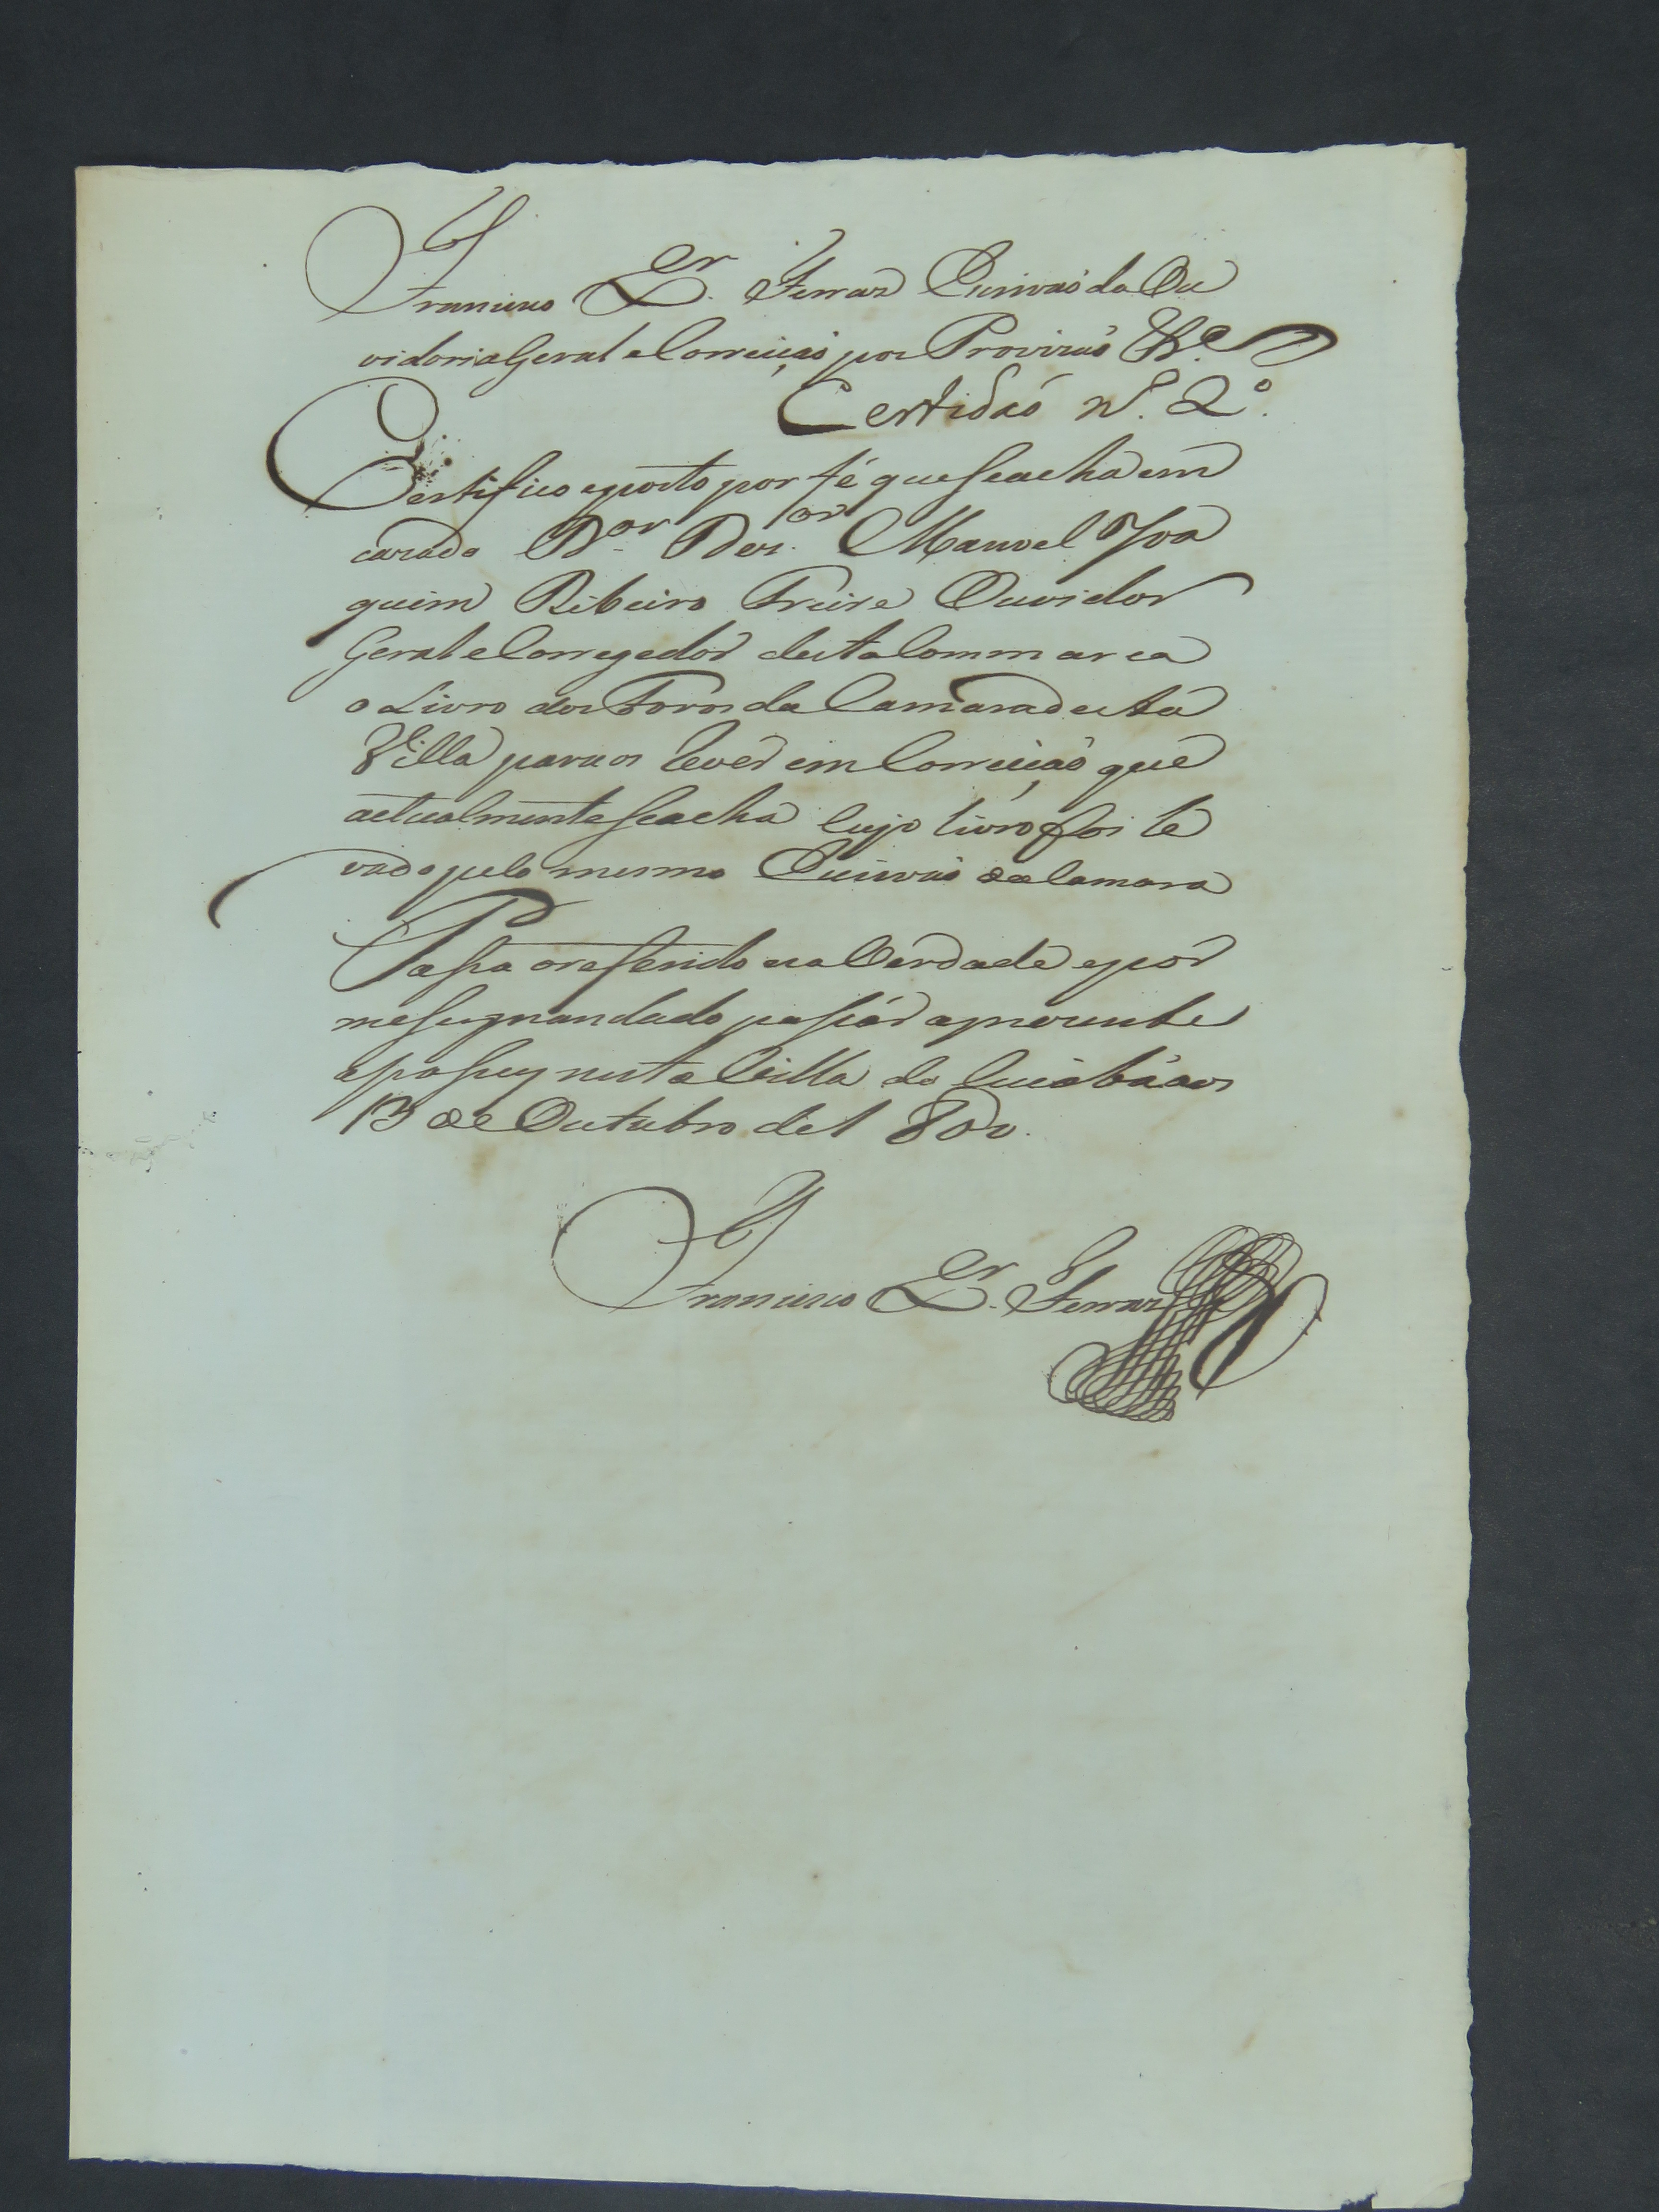 Francisco X.er Ferraz Escrivaõ da Ou
vidoria Geral e Correiçaõ por Provizaõ &.ª
Certidaõ N.º 2º.
Certifico e porto por fé que se acha em
caza do D.or Dez.or Manoel Joa
quim Ribeiro Freire Ouvidor
Geral e Corregedor desta Commarca
o Livro dos Foros da Camara desta
Villa para os ver em Correiçaõ que
actualmente se acha cujo livro foi le
vado pelo mesmo Escrivaõ da Camara
Passa o referido na Verdade e por
me ser mandado passár a prezente
e passey nesta Villa do Cuiabá aos
13 de Outubro de 1800.
Francisco X.er Ferraz